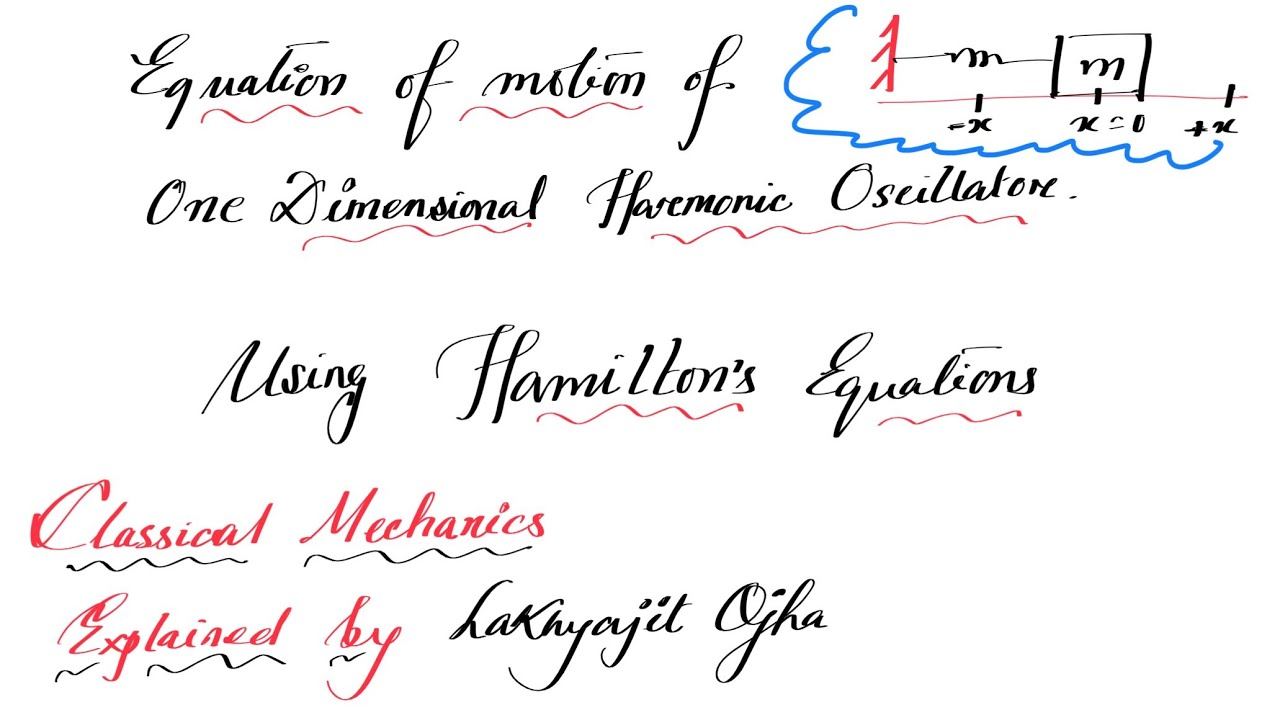 Equation of motion of
m
-x x=0 +x
One Dimensional Harmonic Oscillator.
Using Hamilton's Equations
Classical Mechanics
Explained by Lakhyajit Ojha